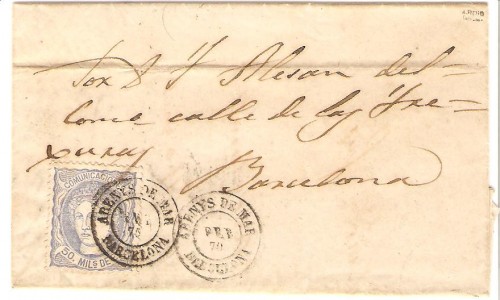 Sor D J Alesan del-
lome calle de las Tre-
xuras
Barcelona
COMUNICACIO
50. MILS DE
ARENYS DE MAR
BARCELONA
ARENYS DE MAR
FEB
70
BARCELONA